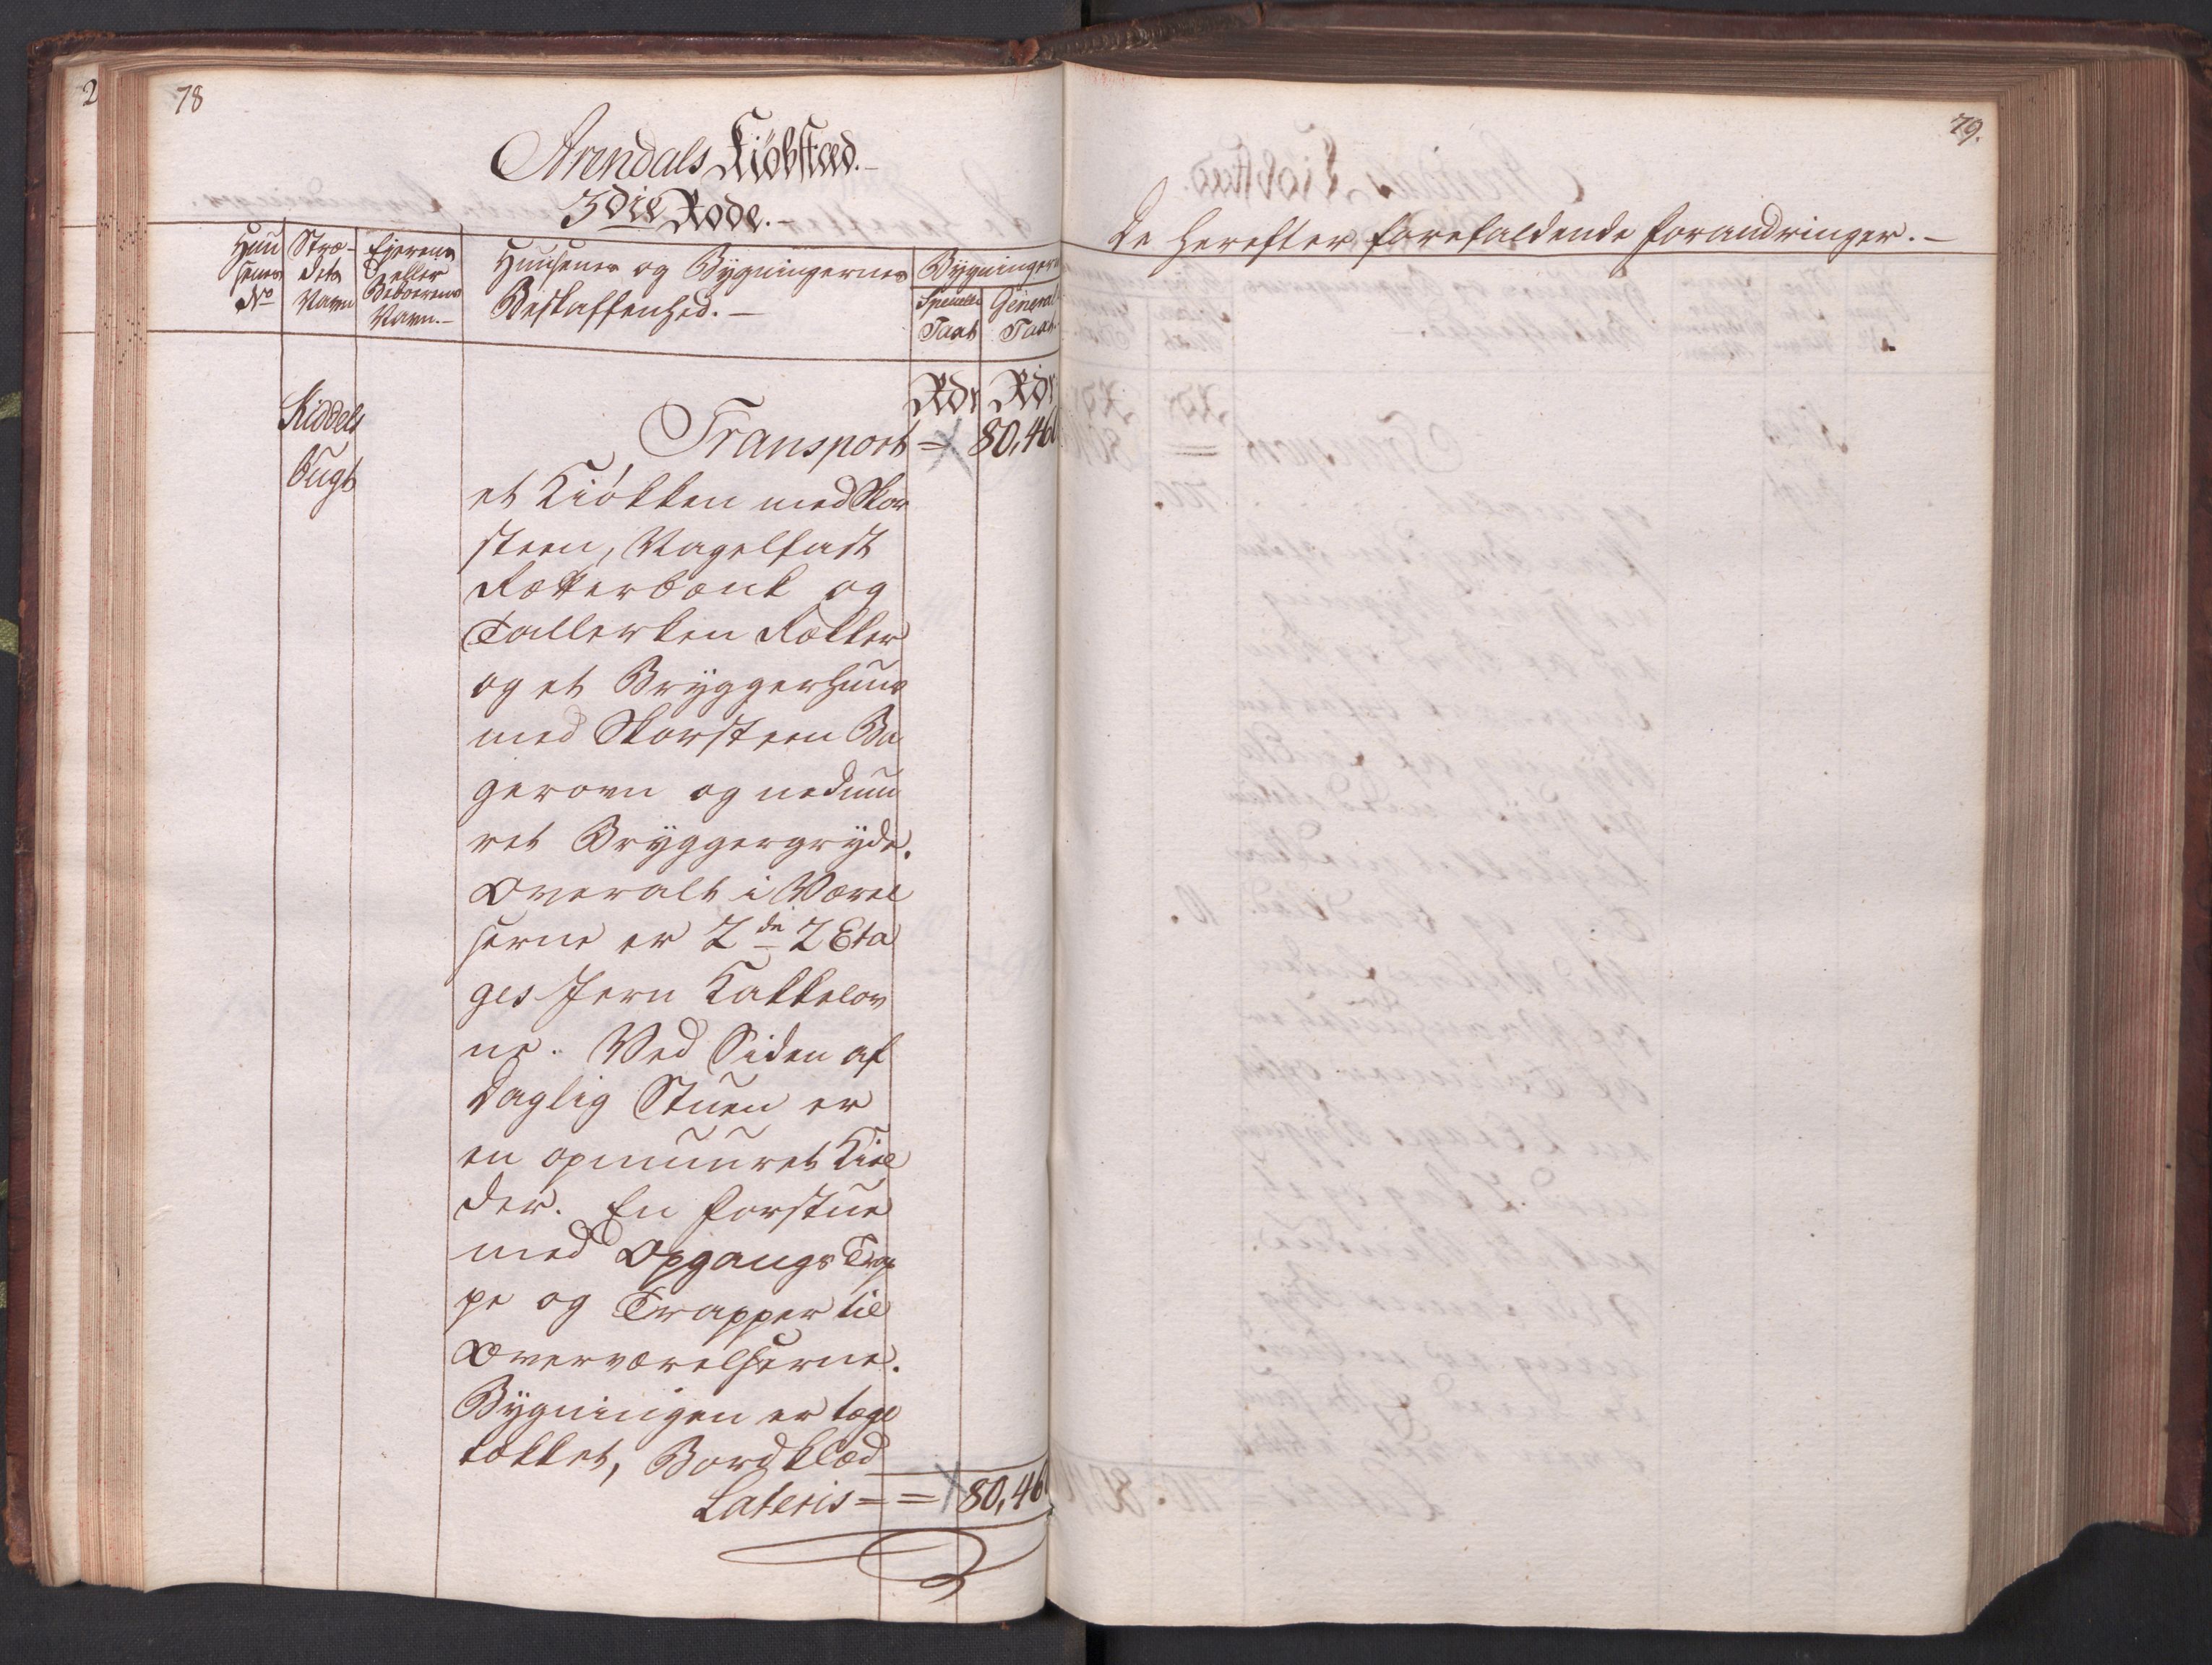 2
78
Arendals Kiöbstæd.-
3die Rode.-
Huu
senes
No
Stræ-
dets
Navn
Ejerens
eller
Beboerens
Navn.-
Huusenes og Bygningernes
Beskaffenhed.-
Bygningern
Speciale
Taxt
General
Taxt.
Rdr Rdr
Kiddels
Bugt
Transport = 80,460
et Kiökken med Skor
steen, Nagelfast
Rætterbænk og
Tallerken Rækker
og et Bryggerhuus
med Skorsteen Ba
gerovn og nedmu
ret Bryggergryde.
Overalt i Værel
serne er 2de 2 Eta
ges Jern Kakkelov
ne. Ved Siden af
Daglig Stuen er
en opmuuret Kiel
der. En Forstue
med Opgangs Trap
pe og Trapper til
Overværelserne.
Bygningen er tægl
tækket, Bordklæd
Lateris = = 80,460
79.
De herefter forefaldende Forandringer.-